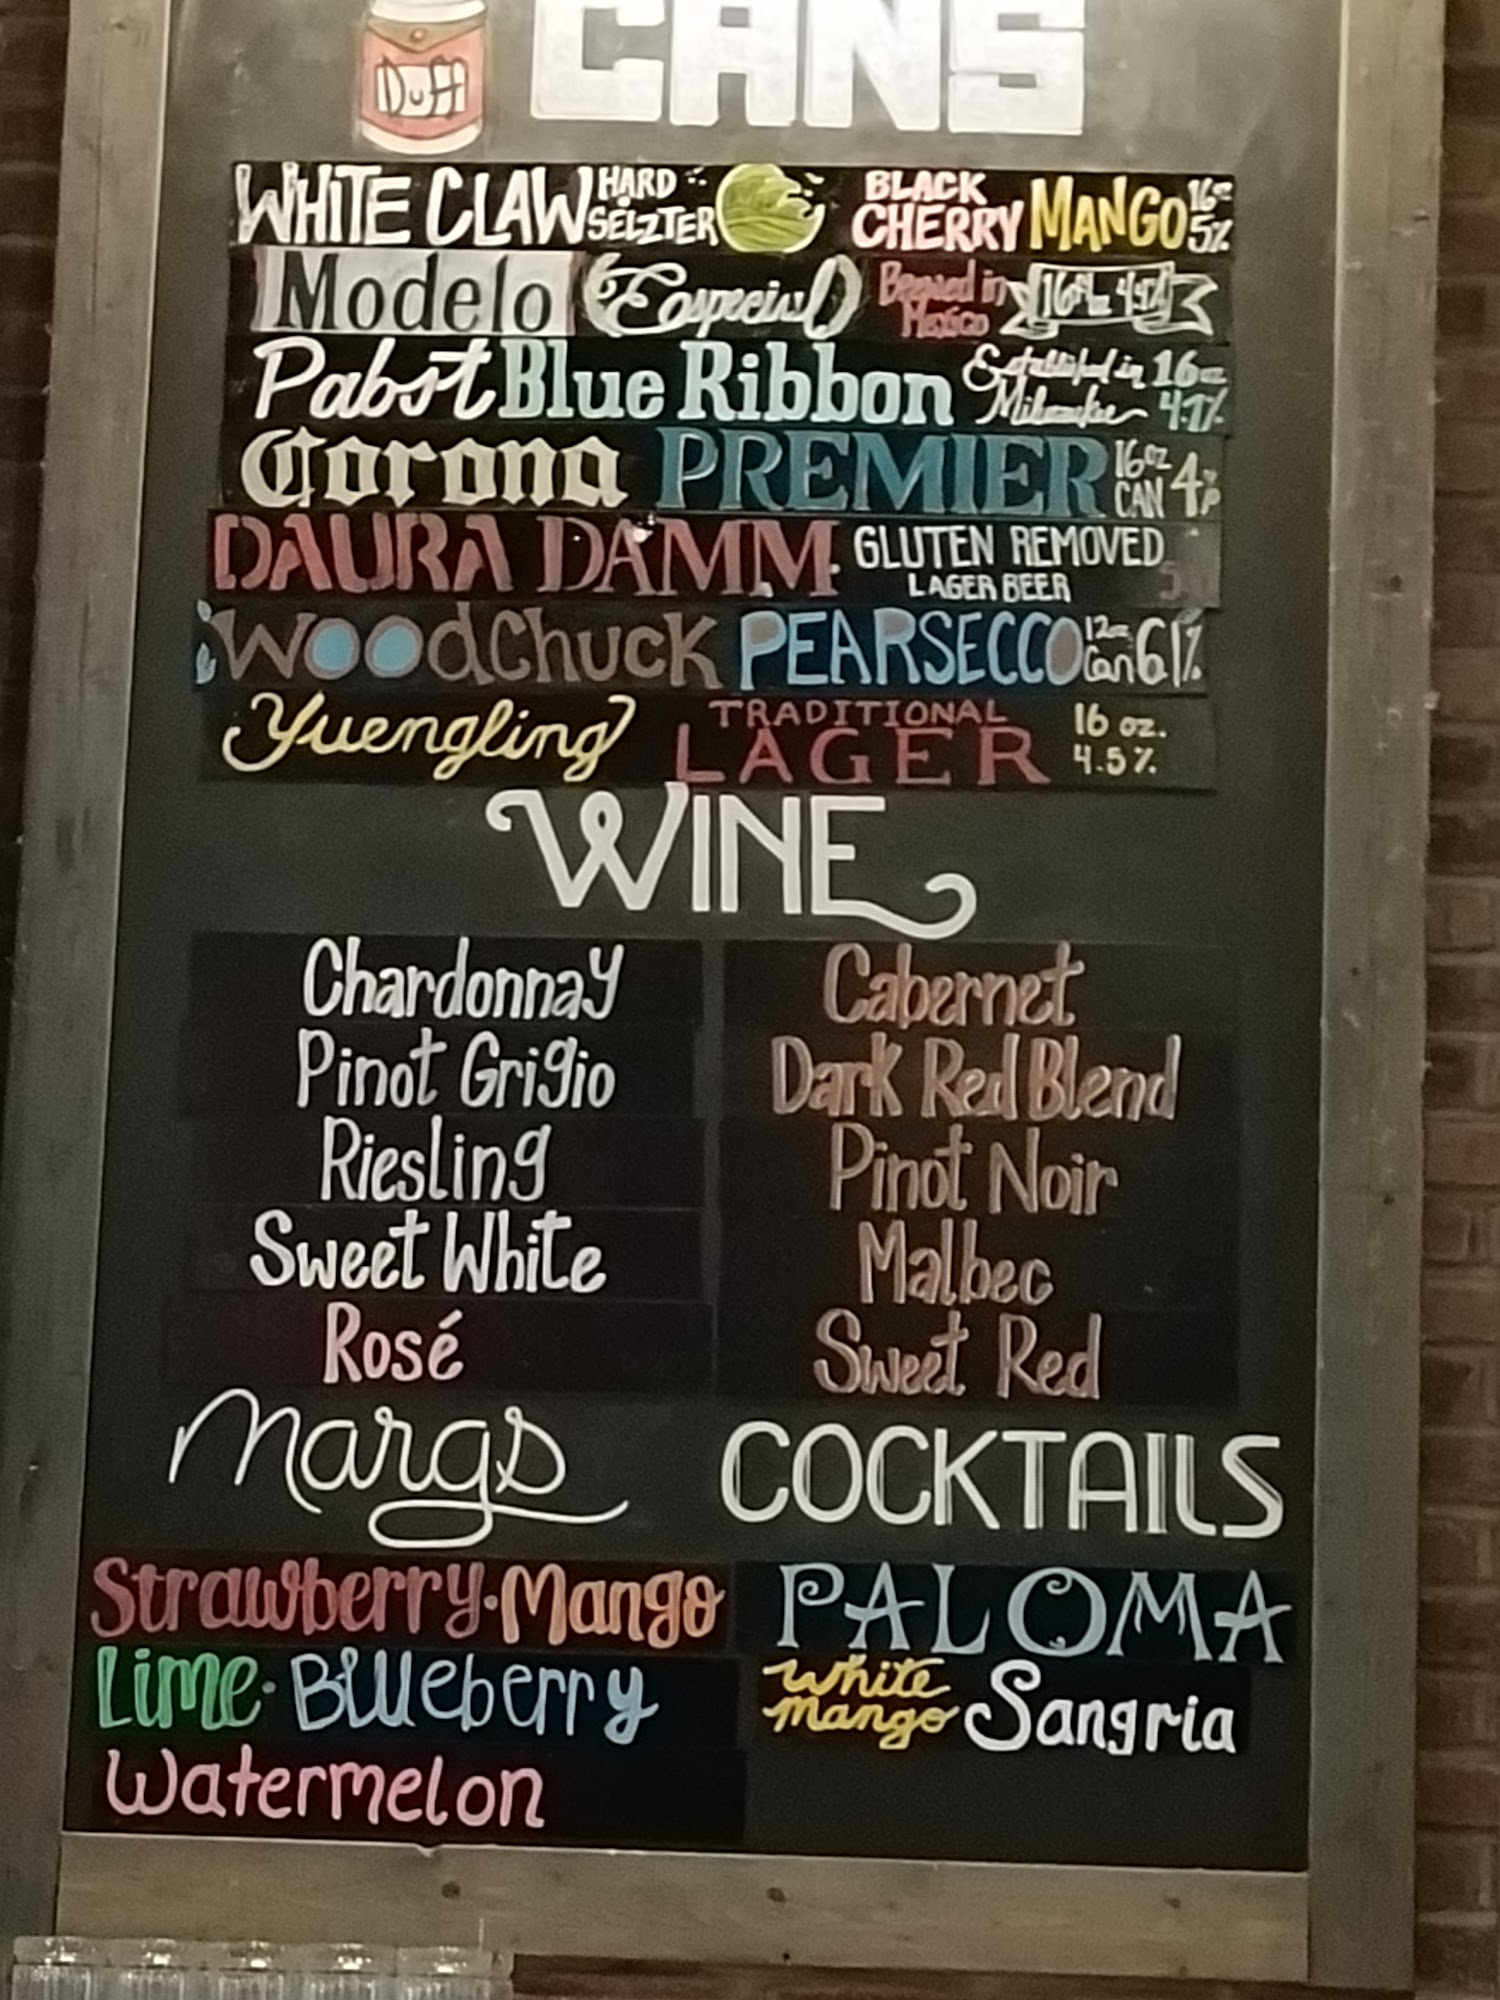 Duff
CANS
WHITE CLAW HARD SELZTER BLACK CHERRY MANGO 16oz 5%
Modelo Especial Brewed in Mexico 16oz
Pabst Blue Ribbon Established in Milwaukee 16oz 4.7%
Corona PREMIER 16oz CAN 4%
DAURA DAMM GLUTEN REMOVED LAGER BEER
WOODCHUCK PEARSECCO 12oz Can 6.1%
Yuengling TRADITIONAL LAGER 16 oz. 4.5%
WINE
Chardonnay Cabernet
Pinot Grigio Dark Red Blend
Riesling Pinot Noir
Sweet White Malbec
Rosé Sweet Red
Margs COCKTAILS
Strawberry·Mango PALOMA
Lime·Blueberry White Mango Sangria
Watermelon